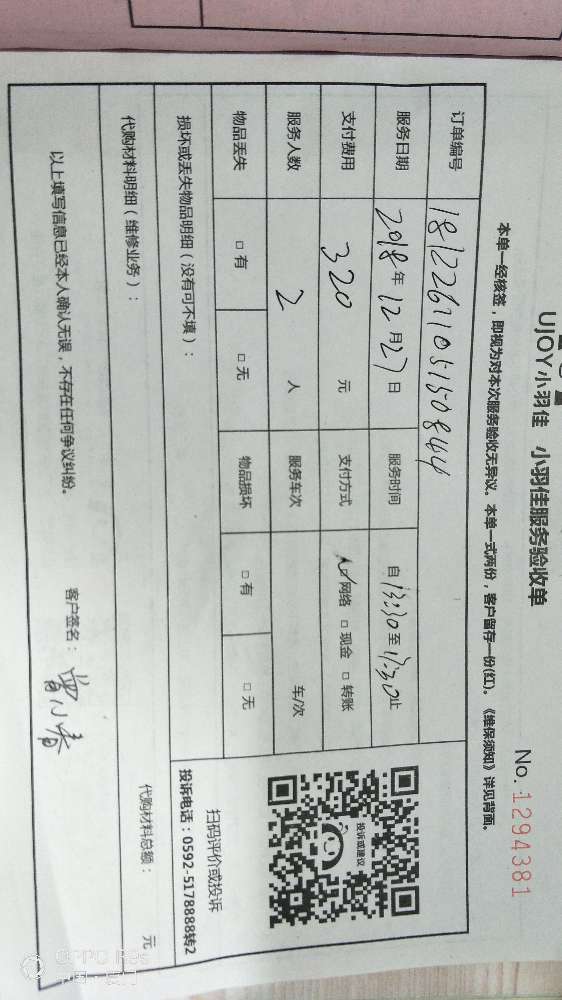 UJOY小羽佳 小羽佳服务验收单
No. 1294381
本单一经核签，即视为对本次服务验收无异议。本单一式两份，客户留存一份(红)。《维保须知》详见背面。
订单编号 1812261105150844
服务日期 2018年12月27日 服务时间 自13:30至17:30止
支付费用 320 元 支付方式 ☑网络 □现金 □转账
服务人数 2 人 服务车次 车/次
物品丢失 □有 □无 物品损坏 □有 □无
投诉或建议
扫码评价或投诉
投诉电话：0592-5178888转2
损坏或丢失物品明细（没有可不填）：
代购材料明细（维修业务）：
代购材料总额： 元
以上填写信息已经本人确认无误，不存在任何争议纠纷。
客户签名：曾小春
OPPO R9s